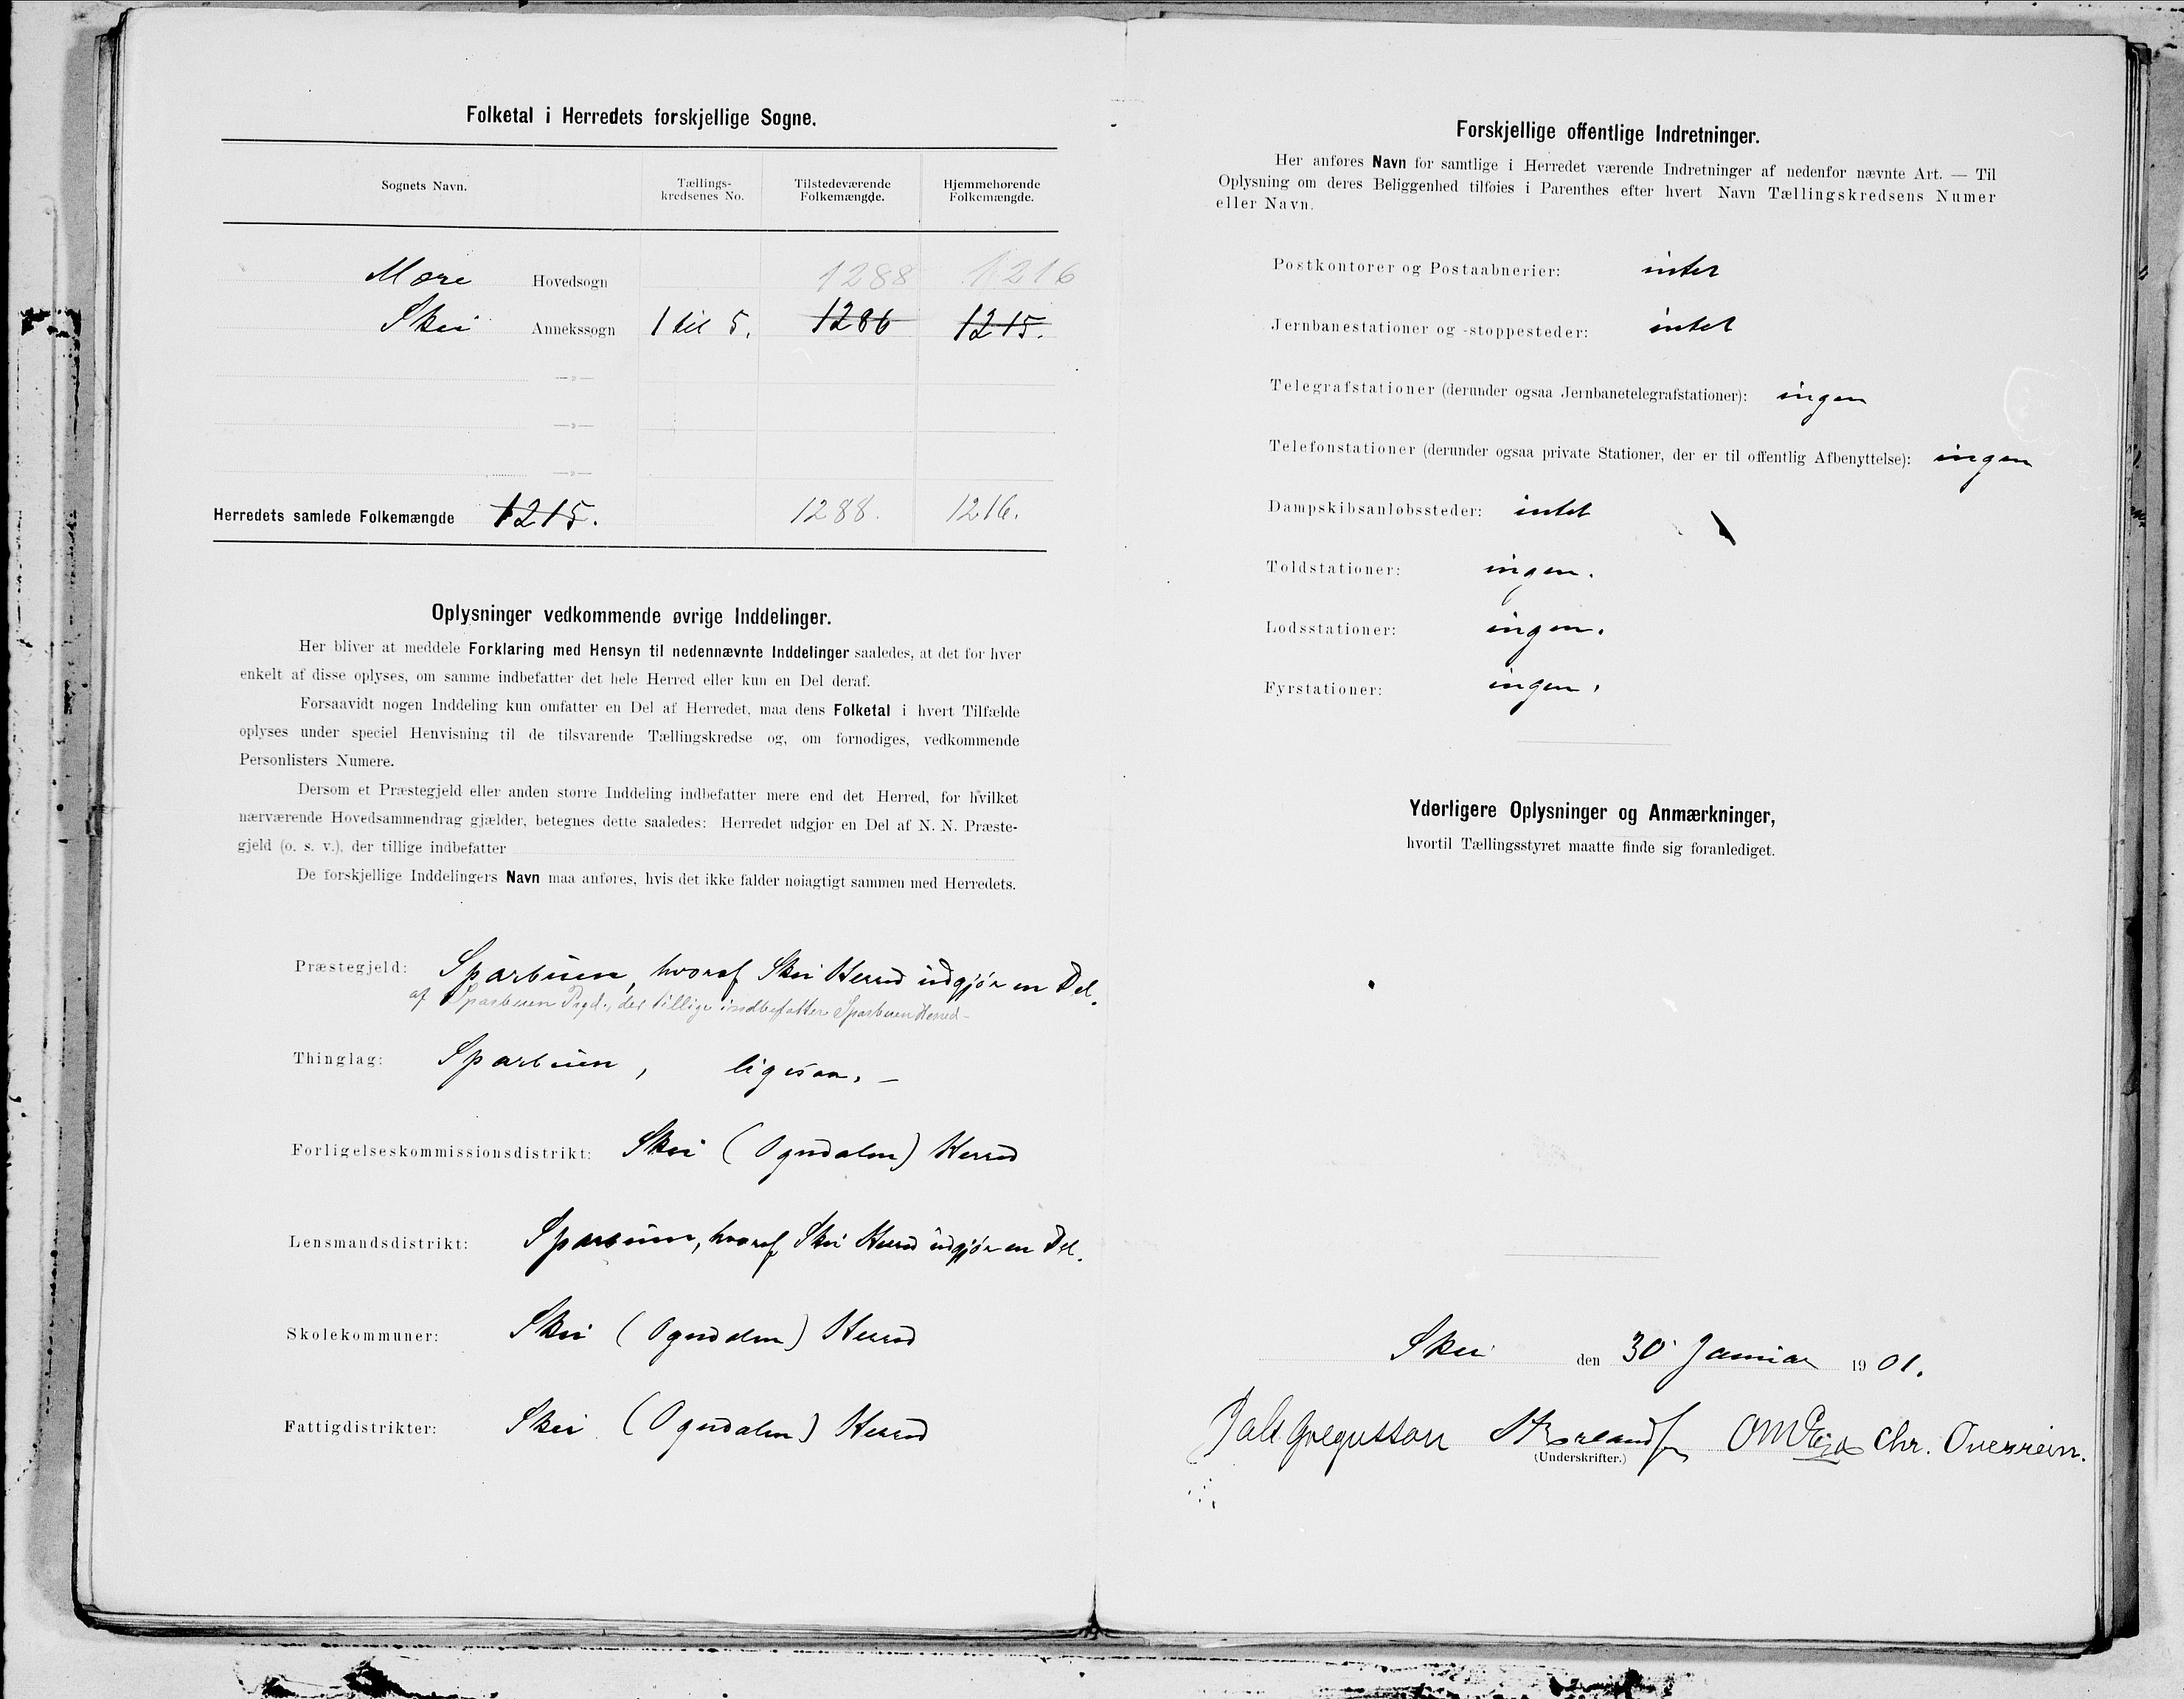 Folketal i Herredets forskjellige Sogne.
Sognets Navn. Tællings-kredsenes No. Tilstedeværende Folkemængde. Hjemmehørende Folkemængde.
Mære Hovedsogn 1288 1216
Skei Annekssogn 1 til 5. 1286 1215.
—»—
—»—
—»—
Herredets samlede Folkemængde 1215. 1288. 1216.
Oplysninger vedkommende øvrige Inddelinger.
Her bliver at meddele Forklaring med Hensyn til nedennævnte Inddelinger saaledes, at det for hver
enkelt af disse oplyses, om samme indbefatter det hele Herred eller kun en Del deraf.
Forsaavidt nogen Inddeling kun omfatter en Del af Herredet, maa dens Folketal i hvert Tilfælde
oplyses under speciel Henvisning til de tilsvarende Tællingskredse og, om fornødiges, vedkommende
Personlisters Numere.
Dersom et Præstegjeld eller anden større Inddeling indbefatter mere end det Herred, for hvilket
nærværende Hovedsammendrag gjælder, betegnes dette saaledes: Herredet udgjør en Del af N. N. Præste-
gjeld (o. s. v.), der tillige indbefatter
De forskjellige Inddelingers Navn maa anføres, hvis det ikke falder nøiagtigt sammen med Herredets.
Præstegjeld: Sparbuen, hvoraf Skei Herred udgjør en Del.
af Sparbuen Prgd., der tillige indbefatter Sparbuen Herred -
Thinglag: Sparbuen, ligesaa. -
Forligelseskommissionsdistrikt: Skei (Ogndalen) Herred
Lensmandsdistrikt: Sparbuen, hvoraf Skei Herred udgjør en Del.
Skolekommuner: Skei (Ogndalen) Herred
Fattigdistrikter: Skei (Ogndalen) Herred
Forskjellige offentlige Indretninger.
Her anføres Navn for samtlige i Herredet værende Indretninger af nedenfor nævnte Art. — Til
Oplysning om deres Beliggenhed tilføies i Parenthes efter hvert Navn Tællingskredsens Numer
eller Navn.
Postkontorer og Postaabnerier: intet
Jernbanestationer og -stoppesteder: intet
Telegrafstationer (derunder ogsaa Jernbanetelegrafstationer): ingen
Telefonstationer (derunder ogsaa private Stationer, der er til offentlig Afbenyttelse): ingen
Dampskibsanløbssteder: intet
Toldstationer: ingen.
Lodsstationer: ingen.
Fyrstationer: ingen.
Yderligere Oplysninger og Anmærkninger,
hvortil Tællingsstyret maatte finde sig foranlediget.
Skei den 30 Januar 1901.
Chr. Overrein.
(Underskrifter.)